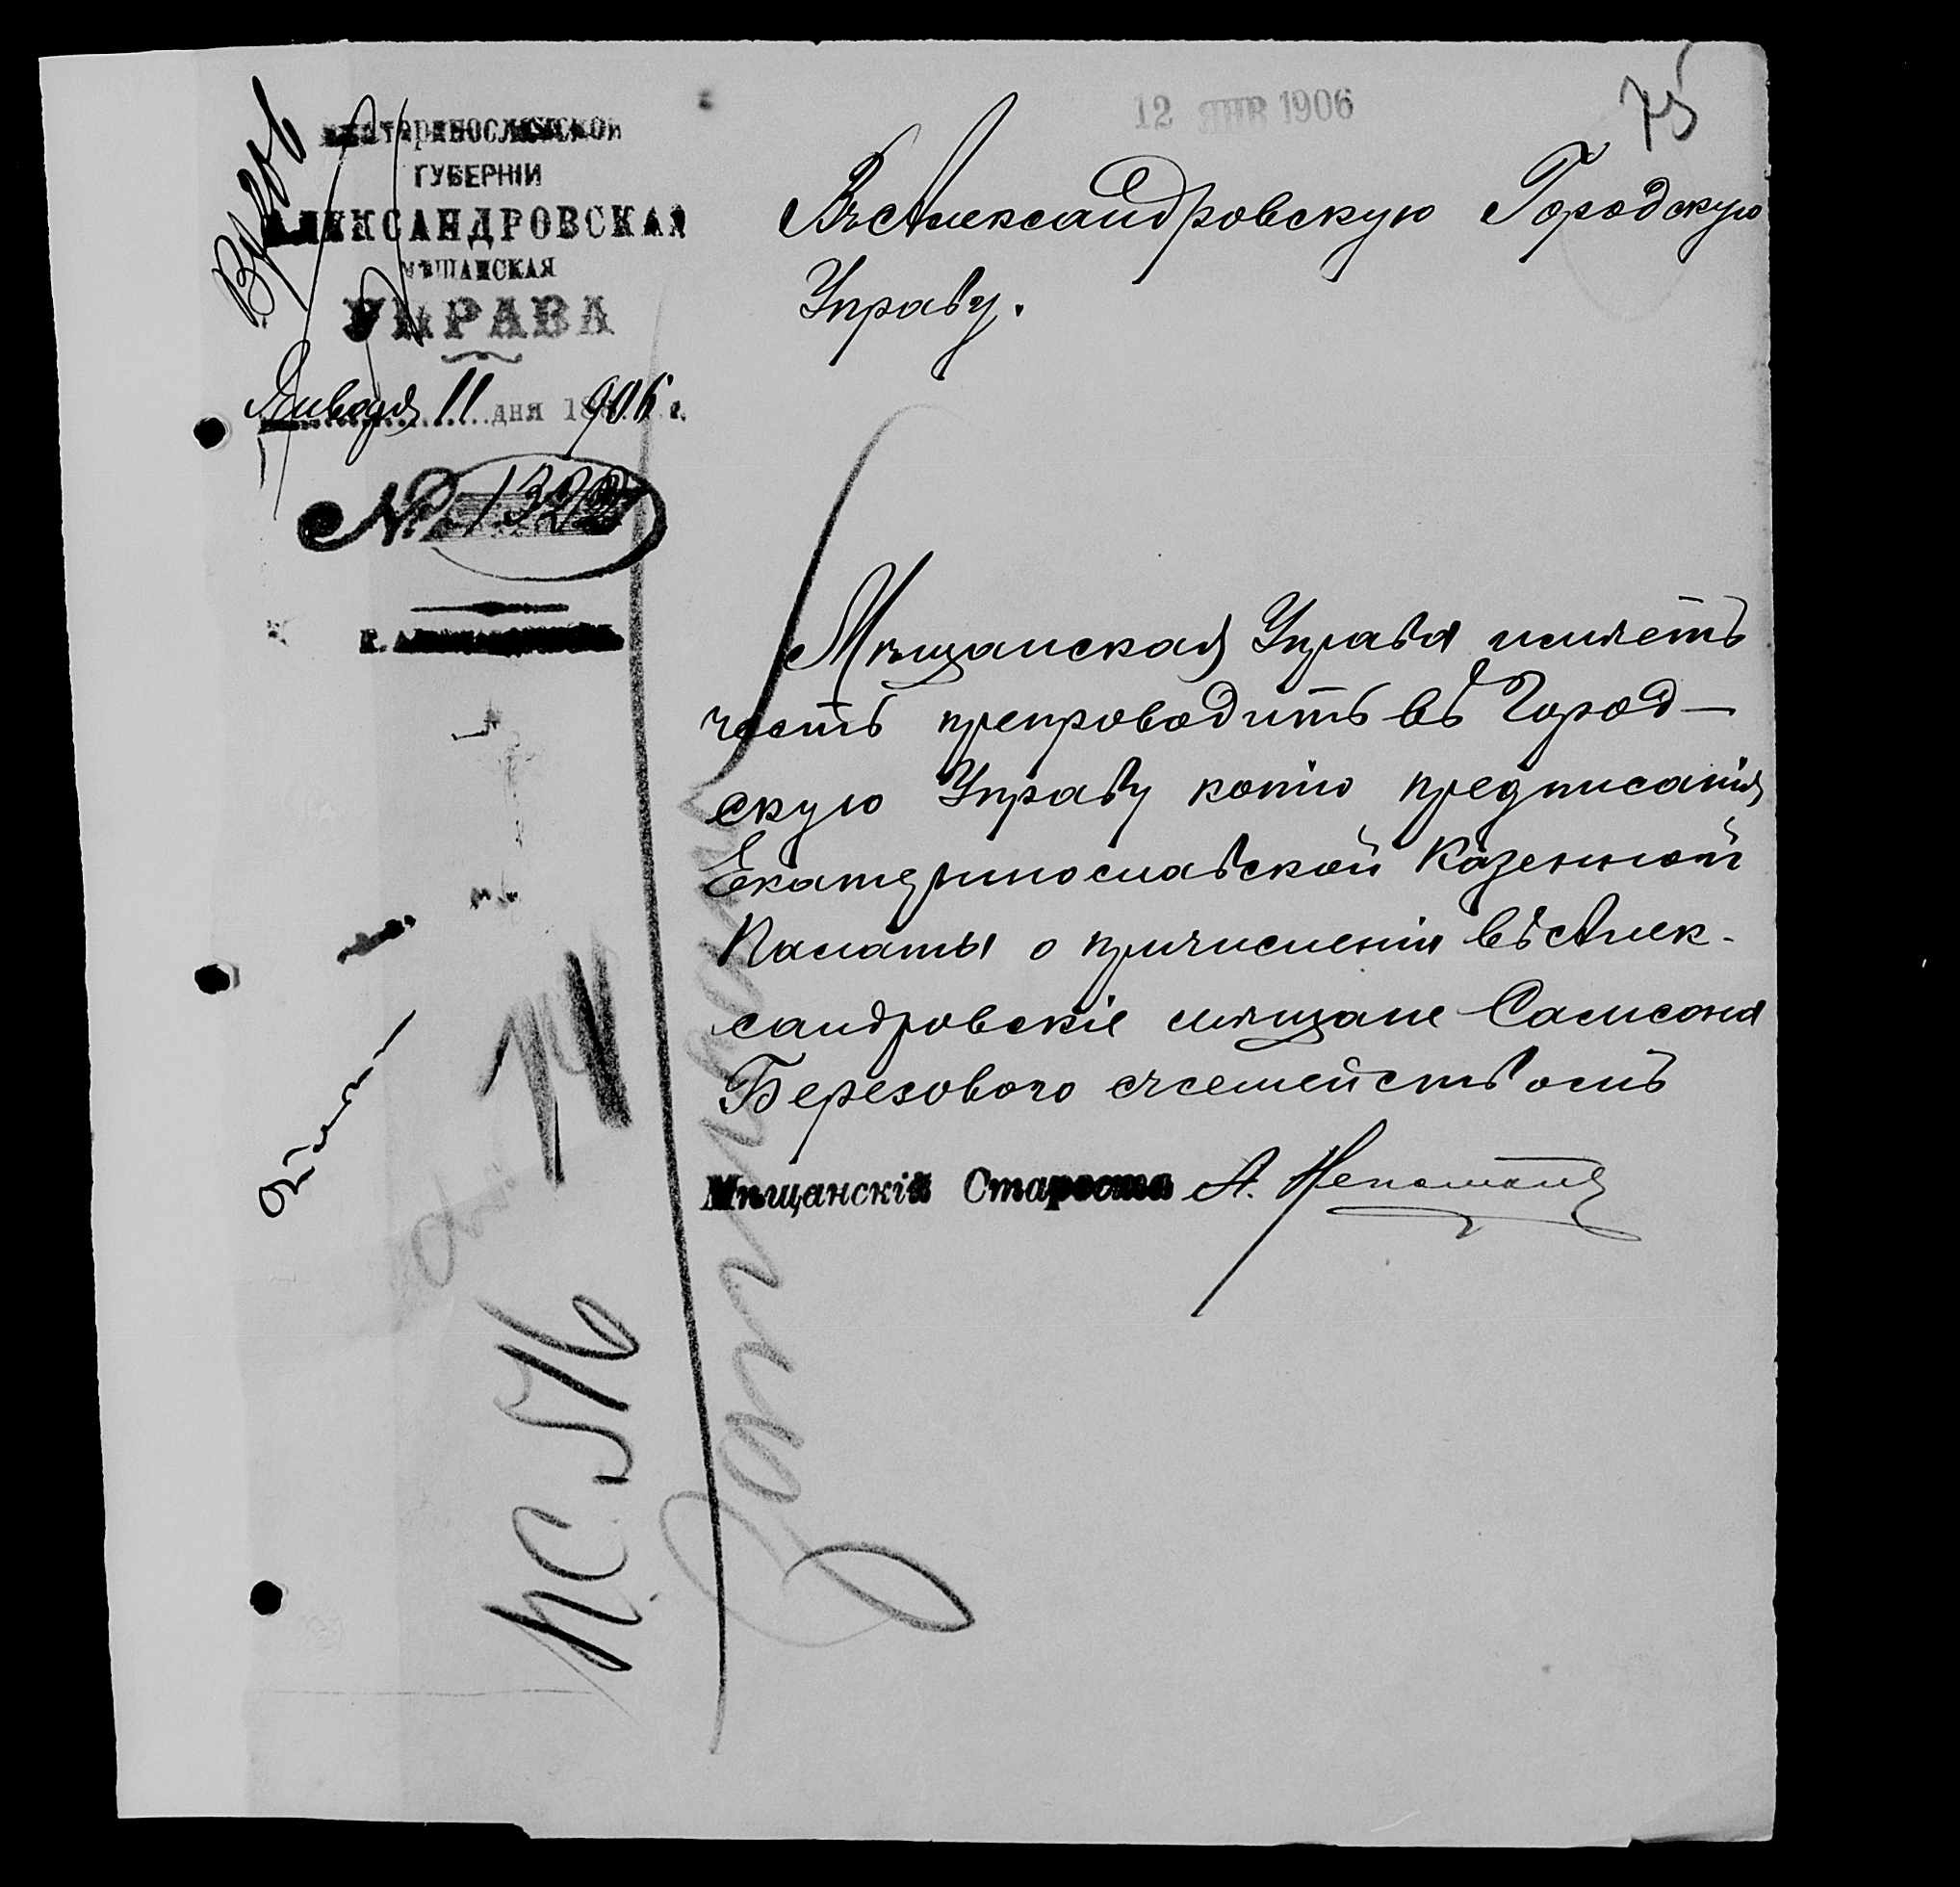 12 ЯНВ 1906
75
Екатеринославской
ГУБЕРНІИ
АЛЕКСАНДРОВСКАЯ
МѢЩАНСКАЯ
УПРАВА
Января 11 дня 1906 г.
№ 1322
Въ Александровскую Городскую
Управу.
Мѣщанская Управа имѣетъ
честь препроводить въ Город-
скую Управу копію предписанія
Екатеринославской Казенной
Палаты о причисленіи въ Алек-
сандровскіе мѣщане Самсона
Березового съ семействомъ
Мѣщанскій Староста А.